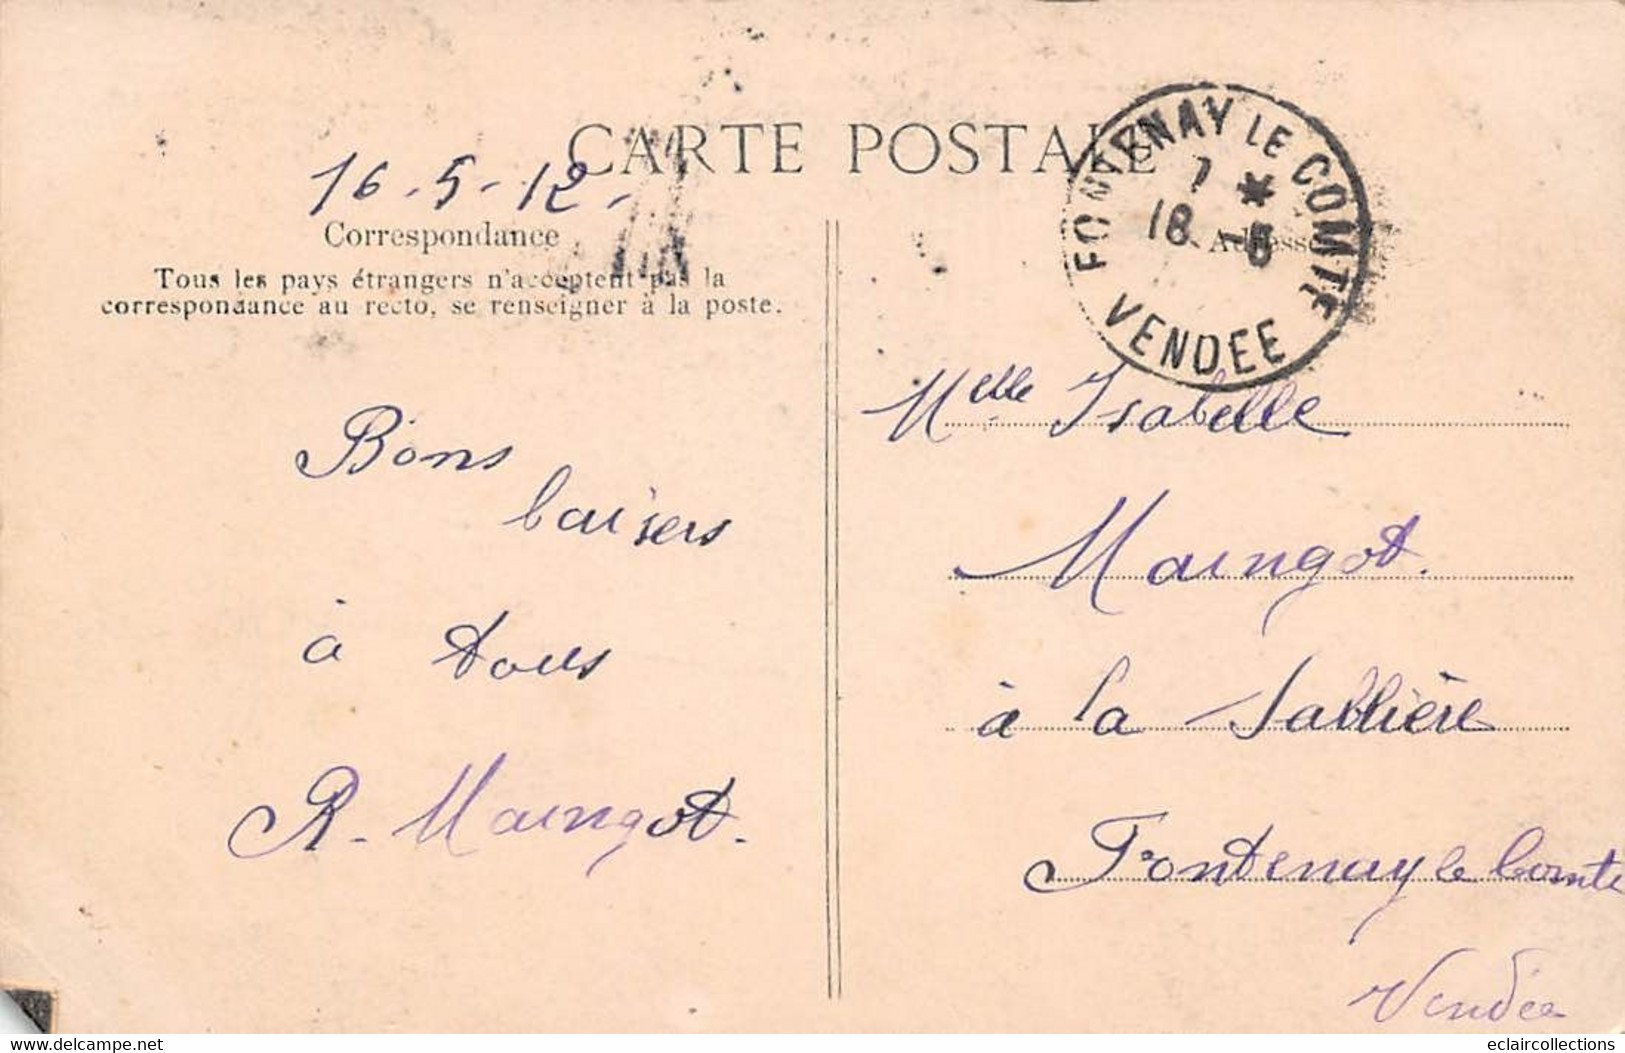 CARTE POSTALE
16-5-12-
Correspondance
Tous les pays étrangers n'acceptent pas la
correspondance au recto, se renseigner à la poste.
Bons
baisers
à tous
R. Maingot.
FONTENAY LE COMTE
7 *
18 - 5
VENDEE
Adresse
Melle Isabelle
Maingot.
à la Sablière
Fontenay le Comte
Vendée
eclaircollections